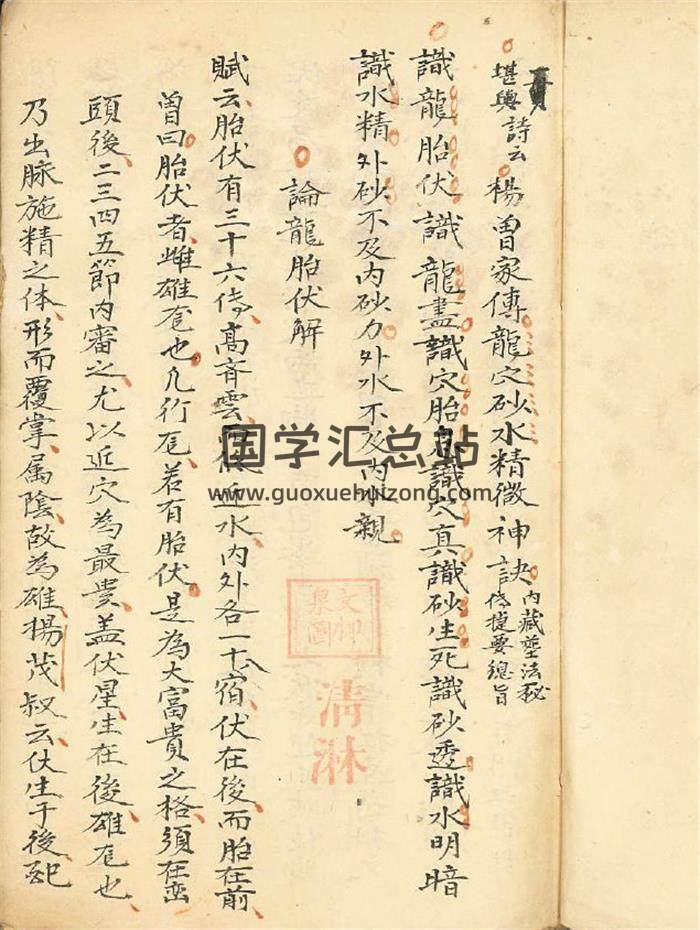 堪輿詩云楊曾家傳龍穴砂水精微神訣內藏塟法秘
傳捷要總旨
識龍胎伏識龍盡識穴胎息識穴真識砂生死識砂透識水明暗
識水精外砂不及內砂力外水不及內水親
論龍胎伏解
賦云胎伏有三十六傳高齊雲漢低近水內外各一十八宿伏在後而胎在前
曾曰胎伏者雌雄也凡行若有胎伏是為大富貴之格須在巒
頭後二三四五節內審之尤以近穴為最貴盖伏星生在後雄也
乃出脉施精之体形而覆掌属陰故為雄楊茂叔云伏生于後
清淋
国学汇总站
www.guoxuehuizong.com